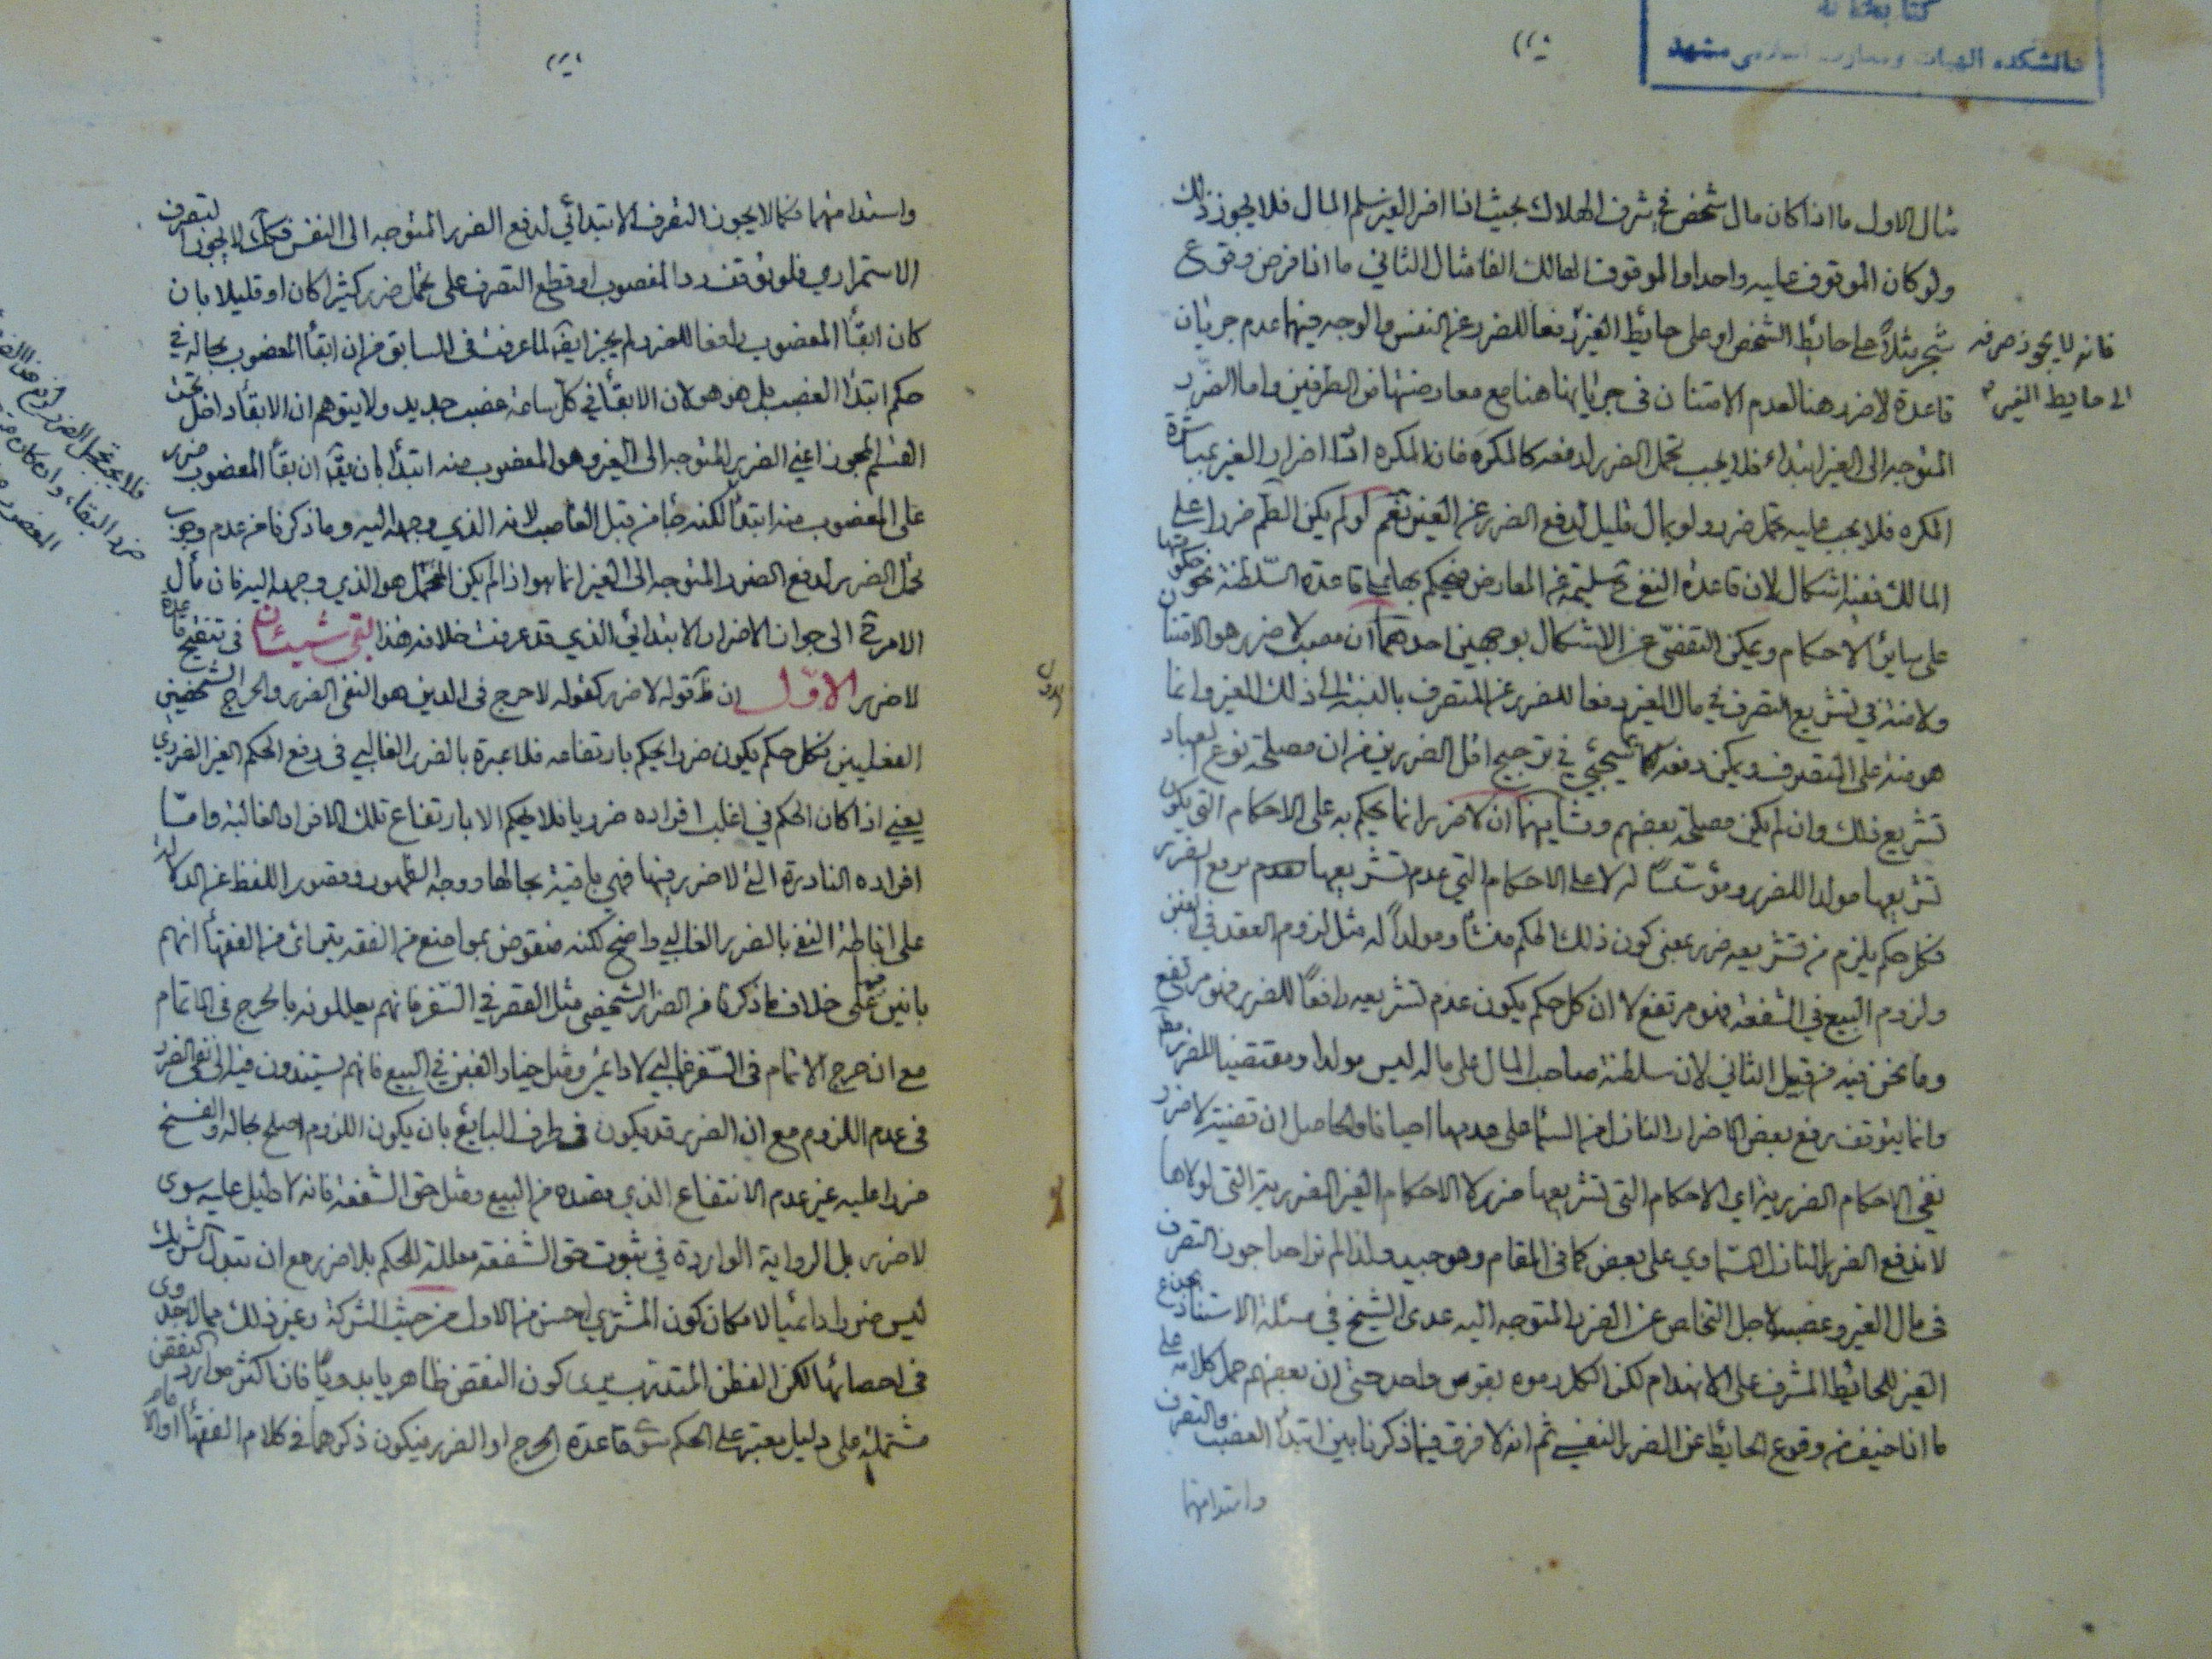 كتابخانه
دانشكده الهيات ومعارف اسلامى مشهد
مثال الاول ما اذا كان مال شخص فى شرف الهلاك بحيث اذا اضر الغير سلم المال فلا يجوز ذلك
ولو كان الموقوف عليه واحدا والموقوف لهالك الفا مثال الثانى ما اذا فرض وقوع
شجر مثلاً على حائط الشخص او على حائط الغير دفعا للضرر عن النفس والوجه فيهما عدم جريان
فانه لا يجوز صرفه
الى حايط الغير
قاعدة لا ضرر هنا لعدم الامتنان فى جريانها هنا مع معارضتها من الطرفين واما الضرر
المتوجه الى الغير ابتداء فلا يجب تحمل الضرر لدفعه كالمكره فان المكره اذا اضرار الغير بمباشرة
المكره فلا يجب عليه تحمل ضرر ولو بمال قليل لدفع الضرر عن الغير نعم لو لم يكن الظلم ضررا على
المالك ففيه اشكال لان قاعدة النفى سليمة عن المعارض فيحكم بها على قاعدة السلطنة نحو حكومتها
على ساير الاحكام ويمكن التفصى عن الاشكال بوجهين احدهما ان مصب لا ضرر هو الامتنان
ولا منة فى تشريع التصرف فى مال الغير دفعا للضرر عن المتصرف بالنسبة الى ذلك الغير وانما
هو منة على المتصرف ويمكن دفعه كما سيجئ فى ترجيح اقل الضررين من ان مصلحة نوع العباد
تشريع ذلك وان لم يكن مصلحة بعضهم وثانيهما ان لا ضرر انما يحكم به على الاحكام التى يكون
تشريعها مولدا للضرر ومؤسسًا له لا على الاحكام التى عدم تشريعها يرفع الضرر
فكل حكم يلزم من تشريعه ضرر بمعنى كون ذلك الحكم منشأ ومولداً له مثل لزوم العقد فى الغبن
ولزوم البيع فى الشفعة فهو مرتفع لا ان كل حكم يكون عدم تشريعه دافعاً للضرر فهو مرتفع
وما نحن فيه من قبيل الثانى لان سلطنة صاحب المال على ماله ليس مولدا ومقتضيا للضرر
وانما يتوقف رفع بعض الاضرار النازل من السماء على عدمها احيانا والحاصل ان قضية لا ضرر
نفى الاحكام الضررية اى الاحكام التى تشريعها ضرر لا الاحكام الغير الضررية التى لولاها
لاندفع الضرر النازل السماوى على بعض كما فى المقام وهو جيد ولذا لم نر احدا جوز التصرف
فى مال الغير وغصبه لاجل التخلص عن الضرر المتوجه اليه عدى الشيخ فى مسئلة الاستناد بجذع
الغير للحائط المشرف على الانهدام لكن الكل رموه بقوس واحد حتى ان بعضهم حمل كلامه على
ما اذا خيف من وقوع الحائط عن الضرر النفسى ثم انه لا فرق فيما ذكرنا بين ابتداء الغصب والتصرف
واستدامتها
واستدامتهما فكما لا يجوز التصرف الابتدائى لدفع الضرر المتوجه الى النفس فكك لا يجوز التصرف
الاستمرارى فلو توقف رد المغصوب او قطع التصرف على تحمل ضرر كثيرا كان او قليلا بان
كان ابقاء المغصوب دافعا للضرر لم يجز ايضا لما عرفت فى السابق من ان ابقاء المغصوب بحاله فى
حكم ابتداء الغصب بل هو هو لان الابقاء فى كل ساعة غصب جديد ولا يتوهم ان الابقاء داخل تحت
القسم المجوز اعنى الضرر المتوجه الى الغير وهو المغصوب منه ابتداء بان يقال ان بقاء المغصوب ضرر
على المغصوب منه ابتداء لكنه جاء من قبل الغاصب لانه الذى وجهه اليه وما ذكرنا من عدم وجوب
تحمل الضرر لدفع الضرر المتوجه الى الغير انما هو اذا لم يكن المتحمل هو الذى وجهه اليه فان مآل
الامر ح الى جواز الاضرار الابتدائى الذى قد عرفت خلافه هذا بقى شيئان فى تنقيح قاعدة
لا ضرر الاول ان ظ قوله لا ضرر كقوله لا حرج فى الدين هو النفى الضرر والحرج الشخصيين
الفعليين فكل حكم يكون ضررا يحكم بارتفاعه فلا عبرة بالضرر الغالبى فى رفع الحكم الغير الضررى
يعنى اذا كان الحكم فى اغلب افراده ضرريا فلا يحكم الا بارتفاع تلك الافراد الغالبة واما
افراده النادرة التى لا ضرر فيها فهى باقية بحالها ووجه الظهور وقصور اللفظ عن الدلالة
على اناطة النفى بالضرر الغالبى واضح لكنه منقوض بمواضع من الفقه يترائى من الفقهاء انهم
بانين فيها على خلاف ما ذكرنا من الضرر الشخصى مثل القصر فى السفر فانهم يعللونه بالحرج فى الاتمام
مع ان حرج الاتمام فى السفر غالبى لا دائمى ومثل خيار الغبن فى البيع فانهم يستندون فيه الى نفى الضرر
فى عدم اللزوم مع ان الضرر قد يكون فى طرف البايع بان يكون اللزوم اصلح بحاله والفسخ
ضررا عليه غير عدم الانتفاع الذى مقصده من البيع ومثل حق الشفعة فانه لا دليل عليه سوى
لا ضرر بل الرواية الواردة فى ثبوت حق الشفعة معللة للحكم بلا ضرر مع ان تبدل الشريك
ليس ضررا دائميا لامكان كون المشترى احسن من الاول من حيث الشركة وغير ذلك مما لا جدوى
فى احصائها لكن الفطن المتدبر يرى كون النقض ظاهريا بدويًا فان اكثر موارد النقض
مشتملة على دليل معتبر على الحكم سوى قاعدة الحرج او الضرر فيكون ذكرهما فى كلام الفقهاء
فلا يجب تحمل الضرر
ضرر البقاء وان كان
المغصوب